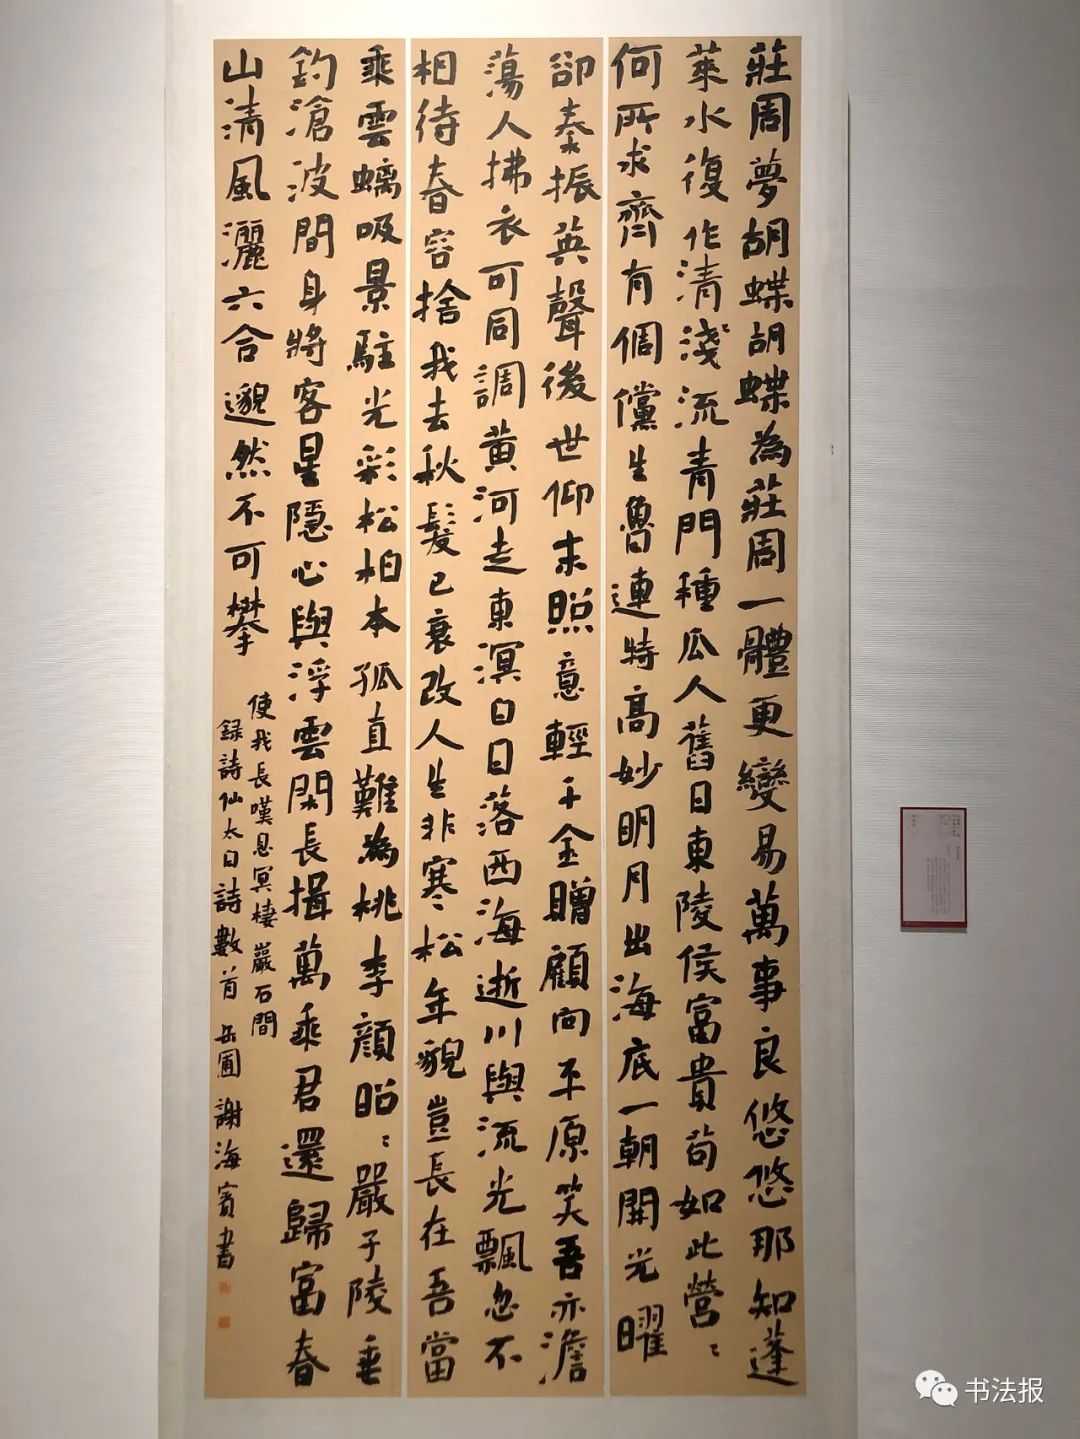 莊周夢胡蝶胡蝶為莊周一體更變易萬事良悠悠那知蓬
萊水復作清淺流青門種瓜人舊日東陵侯富貴苟如此營〻
何所求齊有倜儻生魯連特高妙明月出海底一朝開光曜
卻秦振英聲後世仰末照意輕千金贈顧向平原笑吾亦澹
蕩人拂衣可同調黃河走東溟白日落西海逝川與流光飄忽不
相待春容捨我去秋髮已衰改人生非寒松年貌豈長在吾當
乘雲螭吸景駐光彩松柏本孤直難為桃李顏昭〻嚴子陵垂
釣滄波間身將客星隱心與浮雲閑長揖萬乘君還歸富春
山清風灑六合邈然不可攀
使我長嘆息冥棲巖石間
録詩仙太白詩數首 岳圃 謝海賓書
书法报